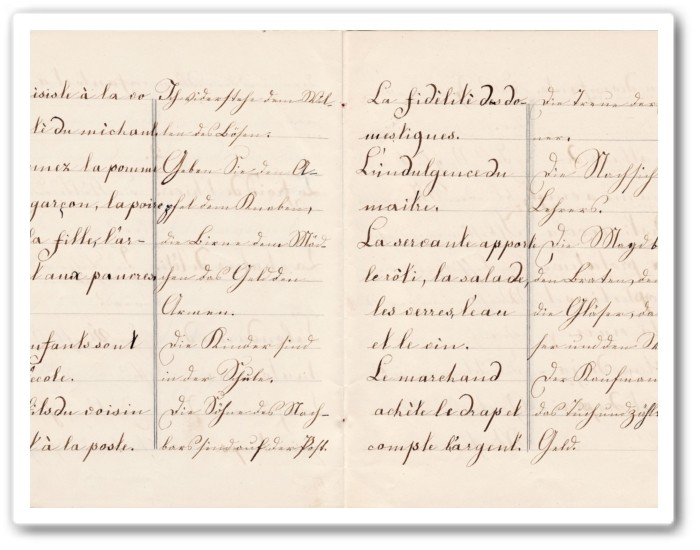 isiste à la vo
té du michant.
nnez la pomme
garçon, la poire
la fille, l'ar-
t aux pauvres.
nfants sont
école.
fils du voisin
t à la poste.
Ich widerstehe dem Wil-
len des Bösen.
Geben Sie den A-
pfel dem Knaben,
die Birne dem Mäd-
chen das Geld den
Armen.
Die Kinder sind
in der Schule.
Die Söhne des Nach-
bars sind auf der Post.
La fidélité des do-
mestiques.
L'indulgence du
maître.
La servante apport
le rôti, la salade,
les verres, l'eau
et le vin.
Le marchand
achète le drap et
compte l'argent.
Die Treue der
ner.
Die Nachsich
Lehrers.
Die Magd b
den Braten, de
die Gläser, da
ser und den W
Der Kaufman
das Tuch und zähl
Geld.